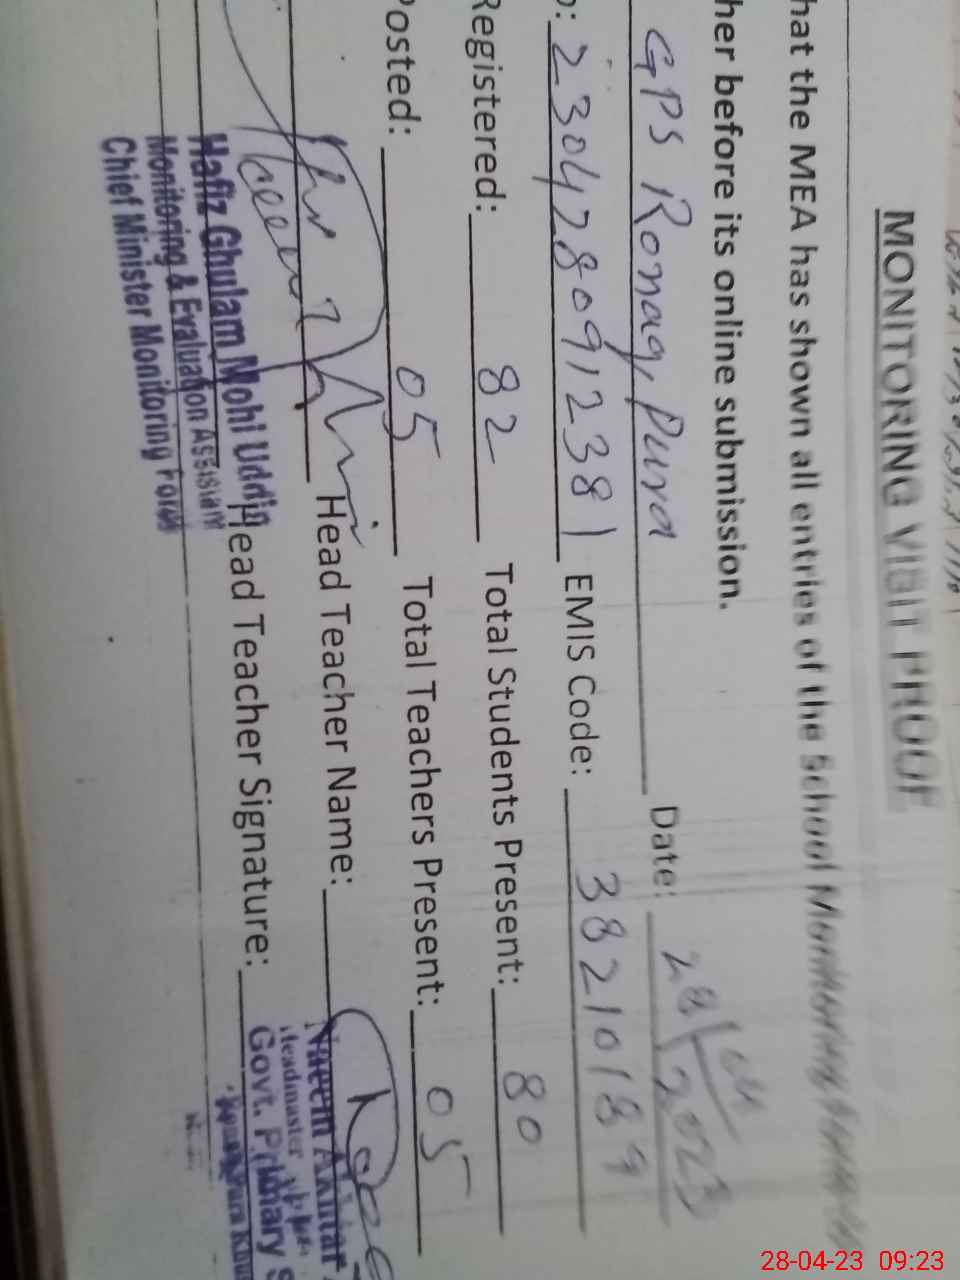 MONITORING VISIT PROOF
hat the MEA has shown all entries of the School Monitoring
her before its online submission.
GPS Ronaq Pura Date: 28/04/2023
o: 230478091238 EMIS Code: 38210189
Registered: 82 Total Students Present: 80
Posted: 05 Total Teachers Present: 05
Head Teacher Name:
Head Teacher Signature:
Hafiz Ghulam Mohi Uddin
Monitoring & Evaluation Assistant
Chief Minister Monitoring Force
Naeem Akhtar
Headmaster
Govt. Primary S
28-04-23 09:23